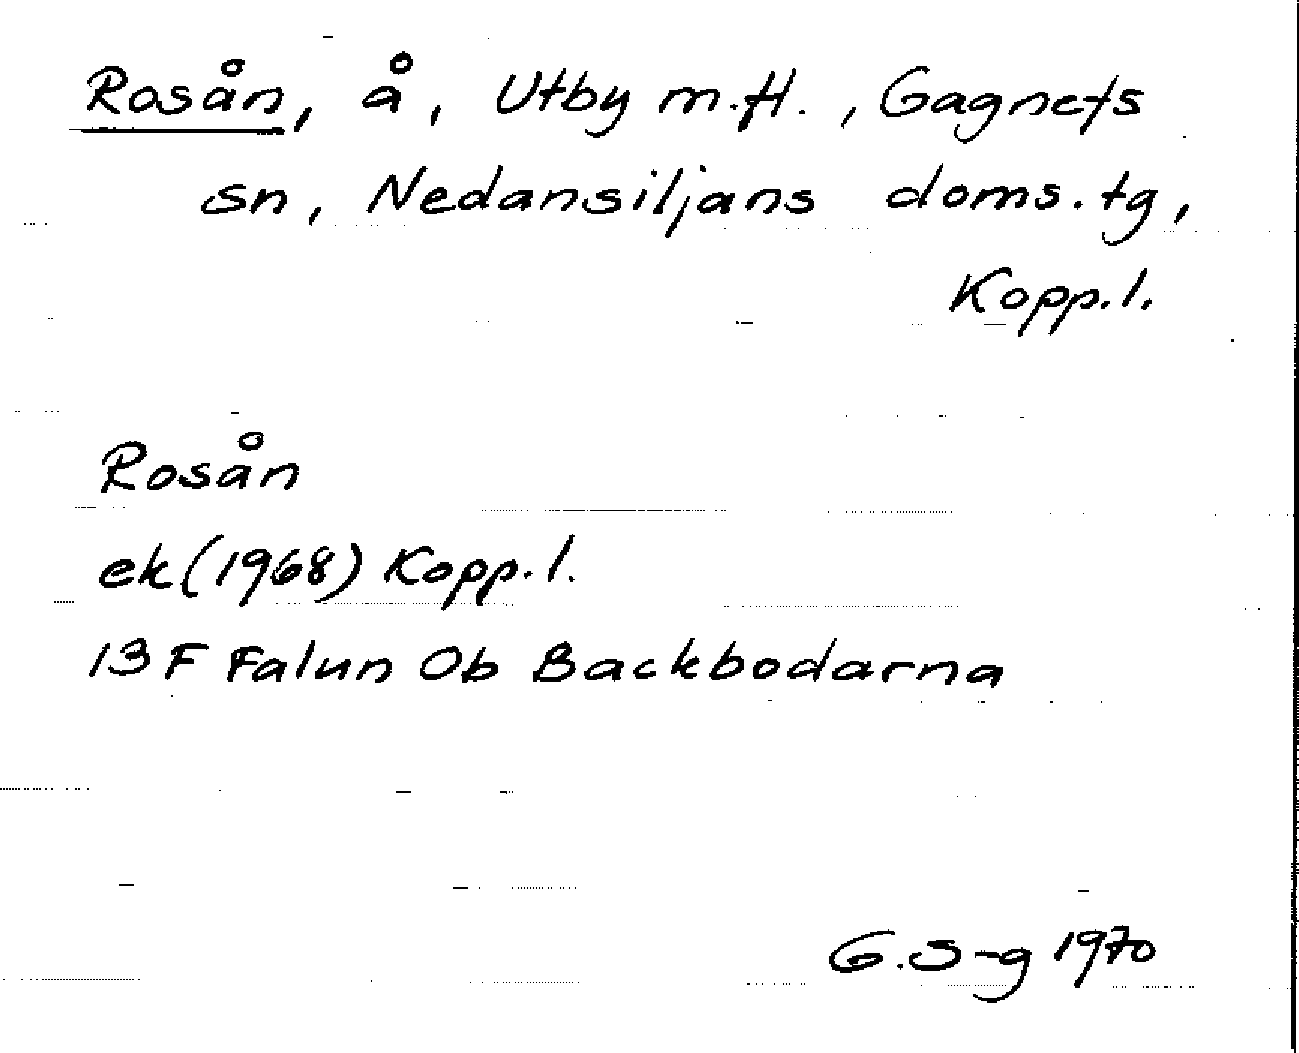 Rosån, å, Utby m.fl., Gagnefs
sn, Nedansiljans doms.tg,
Kopp.l.
Rosån
ek(1968) Kopp.l.
13 F Falun Ob Backbodarna
G.S-g 1970